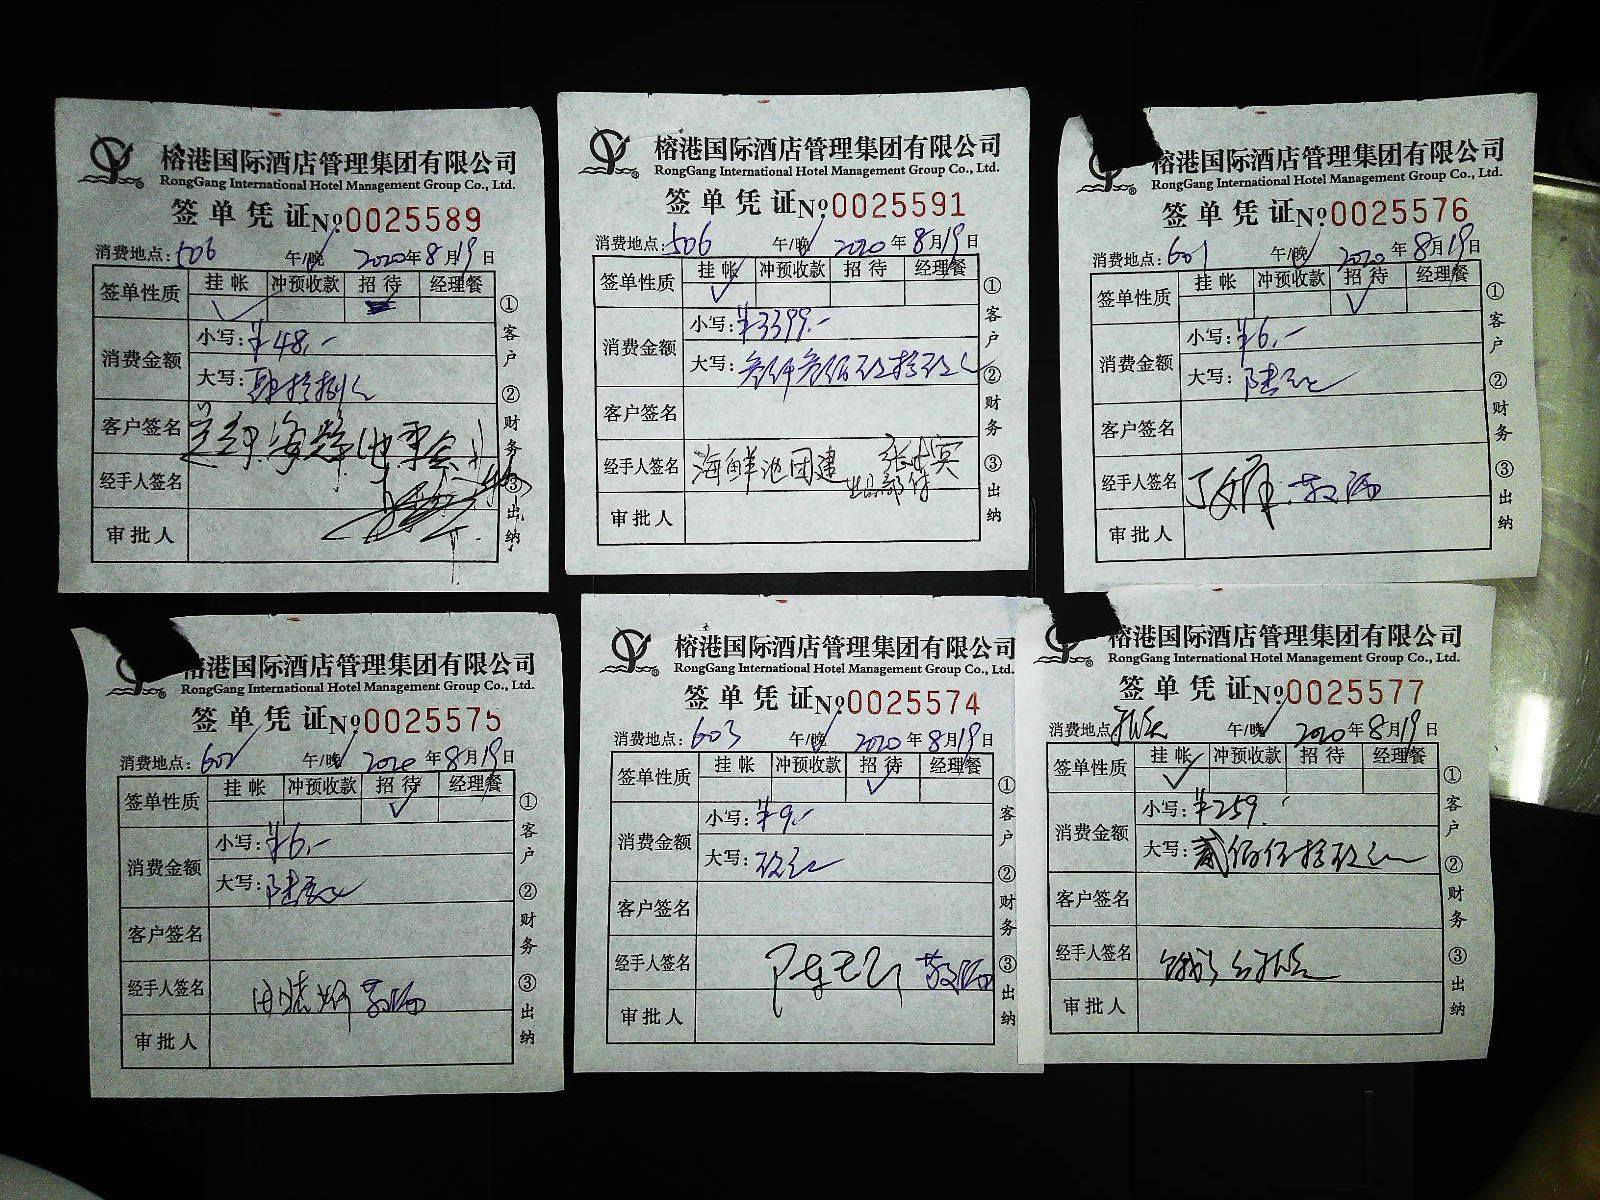 榕港国际酒店管理集团有限公司
RongGang International Hotel Management Group Co., Ltd.
签单凭证 №0025589
消费地点:506 午/晚 2020年8月19日
签单性质 挂帐 冲预收款 招待 经理餐
消费金额
小写:¥48.-
大写:肆拾捌元
客户签名
经手人签名
审批人
①客户 ②财务 ③出纳
榕港国际酒店管理集团有限公司
RongGang International Hotel Management Group Co., Ltd.
签单凭证 №0025591
消费地点:506 午/晚 2020年8月19日
签单性质 挂帐 冲预收款 招待 经理餐
消费金额
小写:¥3399.-
大写:叁仟叁佰玖拾玖元
客户签名
经手人签名 海鲜池团建
审批人
①客户 ②财务 ③出纳
榕港国际酒店管理集团有限公司
RongGang International Hotel Management Group Co., Ltd.
签单凭证 №0025576
消费地点:601 午/晚 2020年8月19日
签单性质 挂帐 冲预收款 招待 经理餐
消费金额
小写:¥6.-
大写:陆元
客户签名
经手人签名
审批人
①客户 ②财务 ③出纳
榕港国际酒店管理集团有限公司
RongGang International Hotel Management Group Co., Ltd.
签单凭证 №0025575
消费地点:602 午/晚 2020年8月19日
签单性质 挂帐 冲预收款 招待 经理餐
消费金额
小写:¥6.-
大写:陆元
客户签名
经手人签名
审批人
①客户 ②财务 ③出纳
榕港国际酒店管理集团有限公司
RongGang International Hotel Management Group Co., Ltd.
签单凭证 №0025574
消费地点:603 午/晚 2020年8月19日
签单性质 挂帐 冲预收款 招待 经理餐
消费金额
小写:¥9.-
大写:玖元
客户签名
经手人签名
审批人
①客户 ②财务 ③出纳
榕港国际酒店管理集团有限公司
RongGang International Hotel Management Group Co., Ltd.
签单凭证 №0025577
消费地点 午/晚 2020年8月19日
签单性质 挂帐 冲预收款 招待 经理餐
消费金额
小写:¥259.
大写:贰佰伍拾玖元
客户签名
经手人签名
审批人
①客户 ②财务 ③出纳